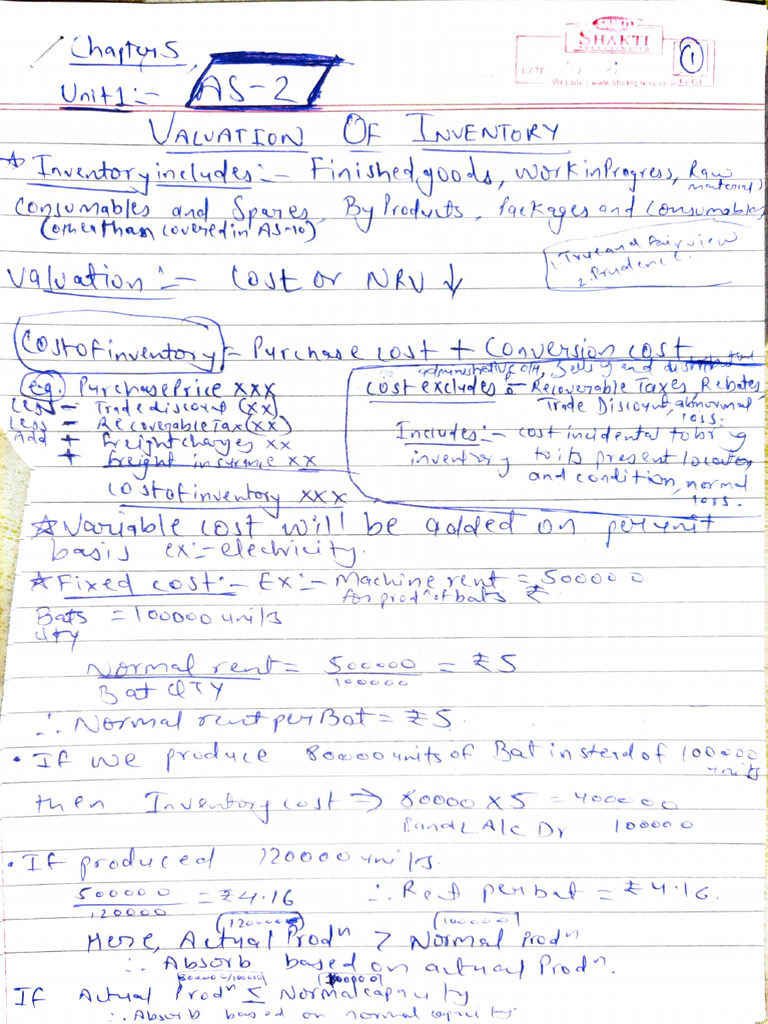 SHAKTI
DATE
Website : www.shakti
1
Chapter 5
Unit 1 :- AS-2
VALUATION OF INVENTORY
* Inventory includes :- Finished goods, Work in Progress, Raw material,
Consumables and Spares, By Products, Packages and Consumables
(other than covered in AS-10)
1. True and Fair view
2. Prudence.
Valuation :- Cost or NRV ↓
Cost of inventory = Purchase cost + Conversion cost
e.g. Purchase Price xxx
Less - Trade discount (xx)
Less - Recoverable Tax (xx)
Add + freight charges xx
+ freight insurance xx
Cost of inventory xxx
administrative O/H, Selling and distribution
Cost excludes :- Recoverable Taxes, Rebates,
Trade Discount, abnormal
loss.
Includes :- cost incidental to bring
inventory to its present location
and condition, normal
loss.
* Variable cost will be added on per unit
basis ex :- electricity.
* Fixed cost :- Ex :- Machine rent = 500000
for prodⁿ of bats ₹
Bats = 100000 units
Qty
Normal rent = 500000 = ₹5
Bat QTY 100000
∴ Normal rent per Bat = ₹5.
• If we produce 80000 units of Bat instead of 100000
units
then Inventory cost ⇒ 80000 X 5 = 400000
P and L A/c Dr 100000
• If produced 120000 units
500000 = ₹4.16 ∴ Rent per bat = ₹4.16.
120000
(120000) (100000)
Here, Actual Prodⁿ > Normal Prodⁿ
∴ Absorb based on actual Prodⁿ.
(100000)
If Actual Prodⁿ ≤ Normal capacity
∴ Absorb based on normal capacity